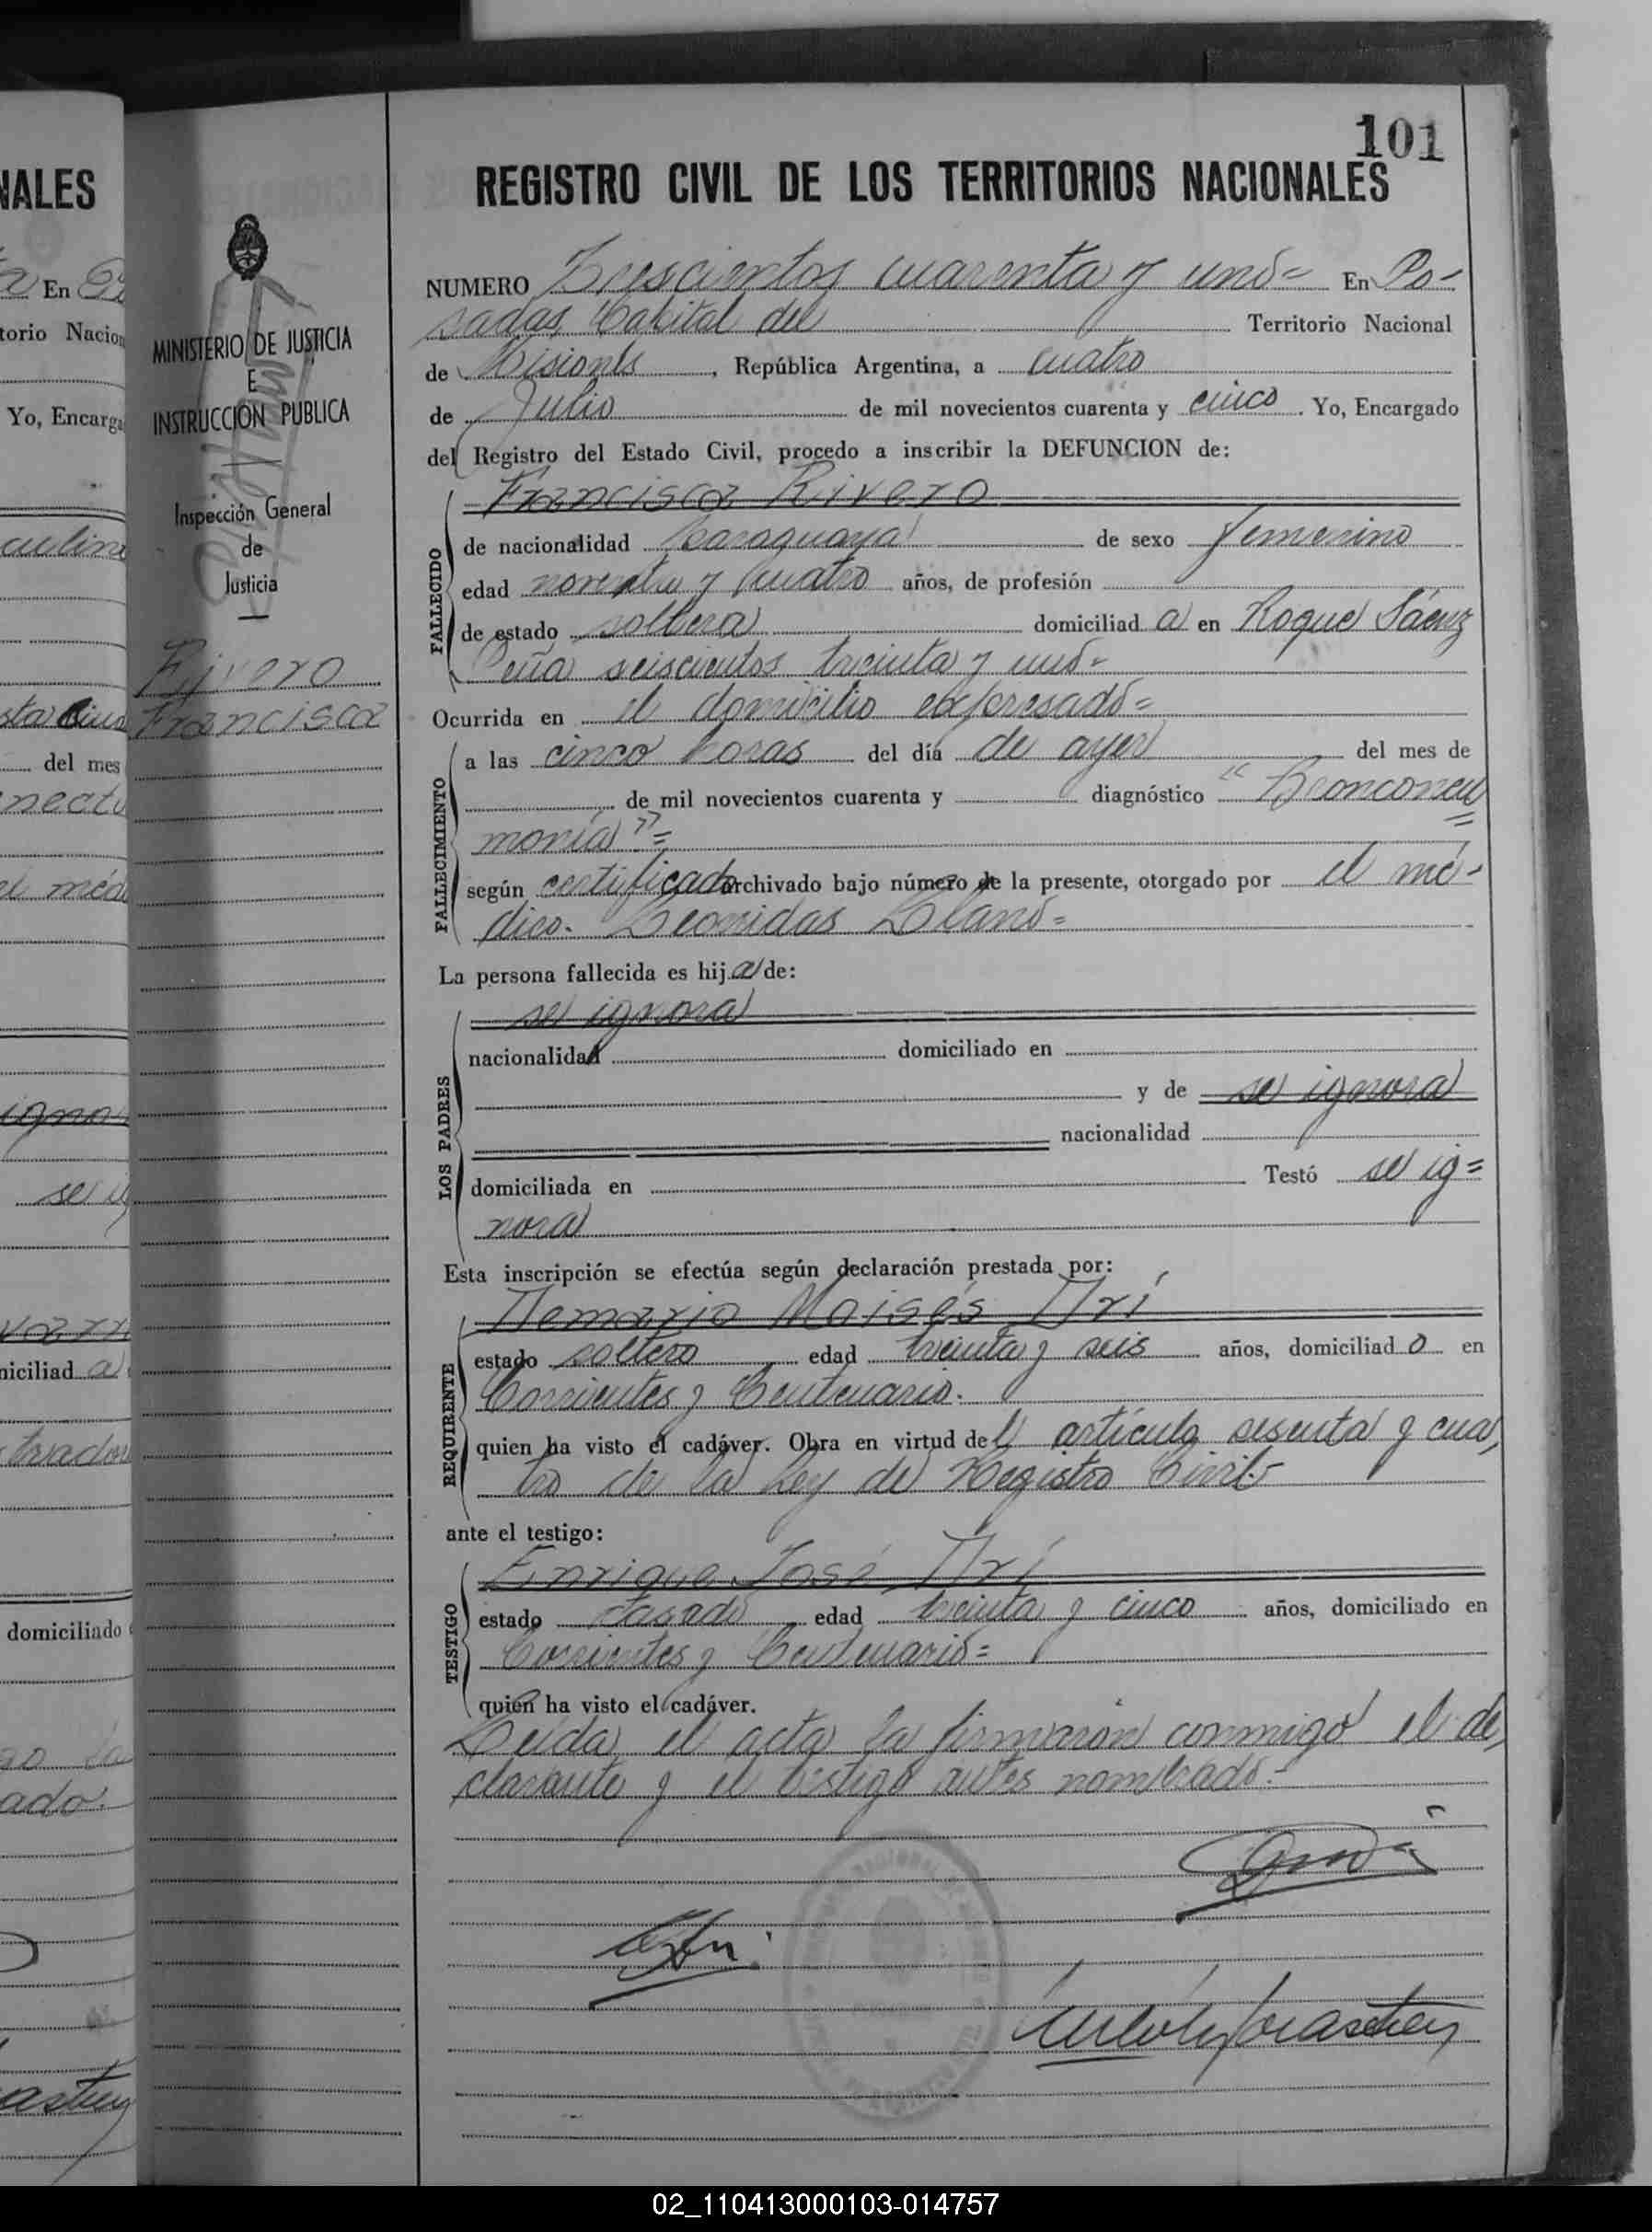 101
REGISTRO CIVIL DE LOS TERRITORIOS NACIONALES
NUMERO Trescientos cuarenta y uno= En Po-
sadas Capital del Territorio Nacional
de Misiones, República Argentina, a cuatro
de Julio de mil novecientos cuarenta y cinco. Yo, Encargado
del Registro del Estado Civil, procedo a inscribir la DEFUNCION de:
FALLECIDO
Francisca Rivero
de nacionalidad paraguaya de sexo femenino
edad noventa y cuatro años, de profesión
de estado soltera domiciliad a en Roque Sáenz
Peña seiscientos treinta y uno-
Ocurrida en el domicilio expresado=
FALLECIMIENTO
a las cinco horas del día de ayer del mes de
de mil novecientos cuarenta y diagnóstico "Bronconeu
monía"=
según certificado archivado bajo número de la presente, otorgado por el mé-
dico. Leonidas Llano=
La persona fallecida es hij a de:
LOS PADRES
se ignora
nacionalidad domiciliado en
y de se ignora
nacionalidad
domiciliada en Testó se ig=
nora
Esta inscripción se efectúa según declaración prestada por:
REQUIRENTE
Nemario Moisés Irí
estado soltero edad treinta y seis años, domiciliad o en
Corrientes y Centenario.
quien ha visto el cadáver. Obra en virtud del artículo sesenta y cua,
tro de la Ley de Registro Civil.-
ante el testigo:
TESTIGO
Enrique José Irí
estado casado edad treinta y cinco años, domiciliado en
Corrientes y Centenario=
quien ha visto el cadáver.
Leída el acta la firmaron conmigo el de,
clarante y el testigo antes nombrado.-
MINISTERIO DE JUSTICIA
E
INSTRUCCION PUBLICA
Inspección General
de
Justicia
Rivero
Francisca
NALES
En
torio Nacion
Yo, Encarga
del mes
el méd
se ig
miciliad a
domiciliado
ado.
02_110413000103-014757